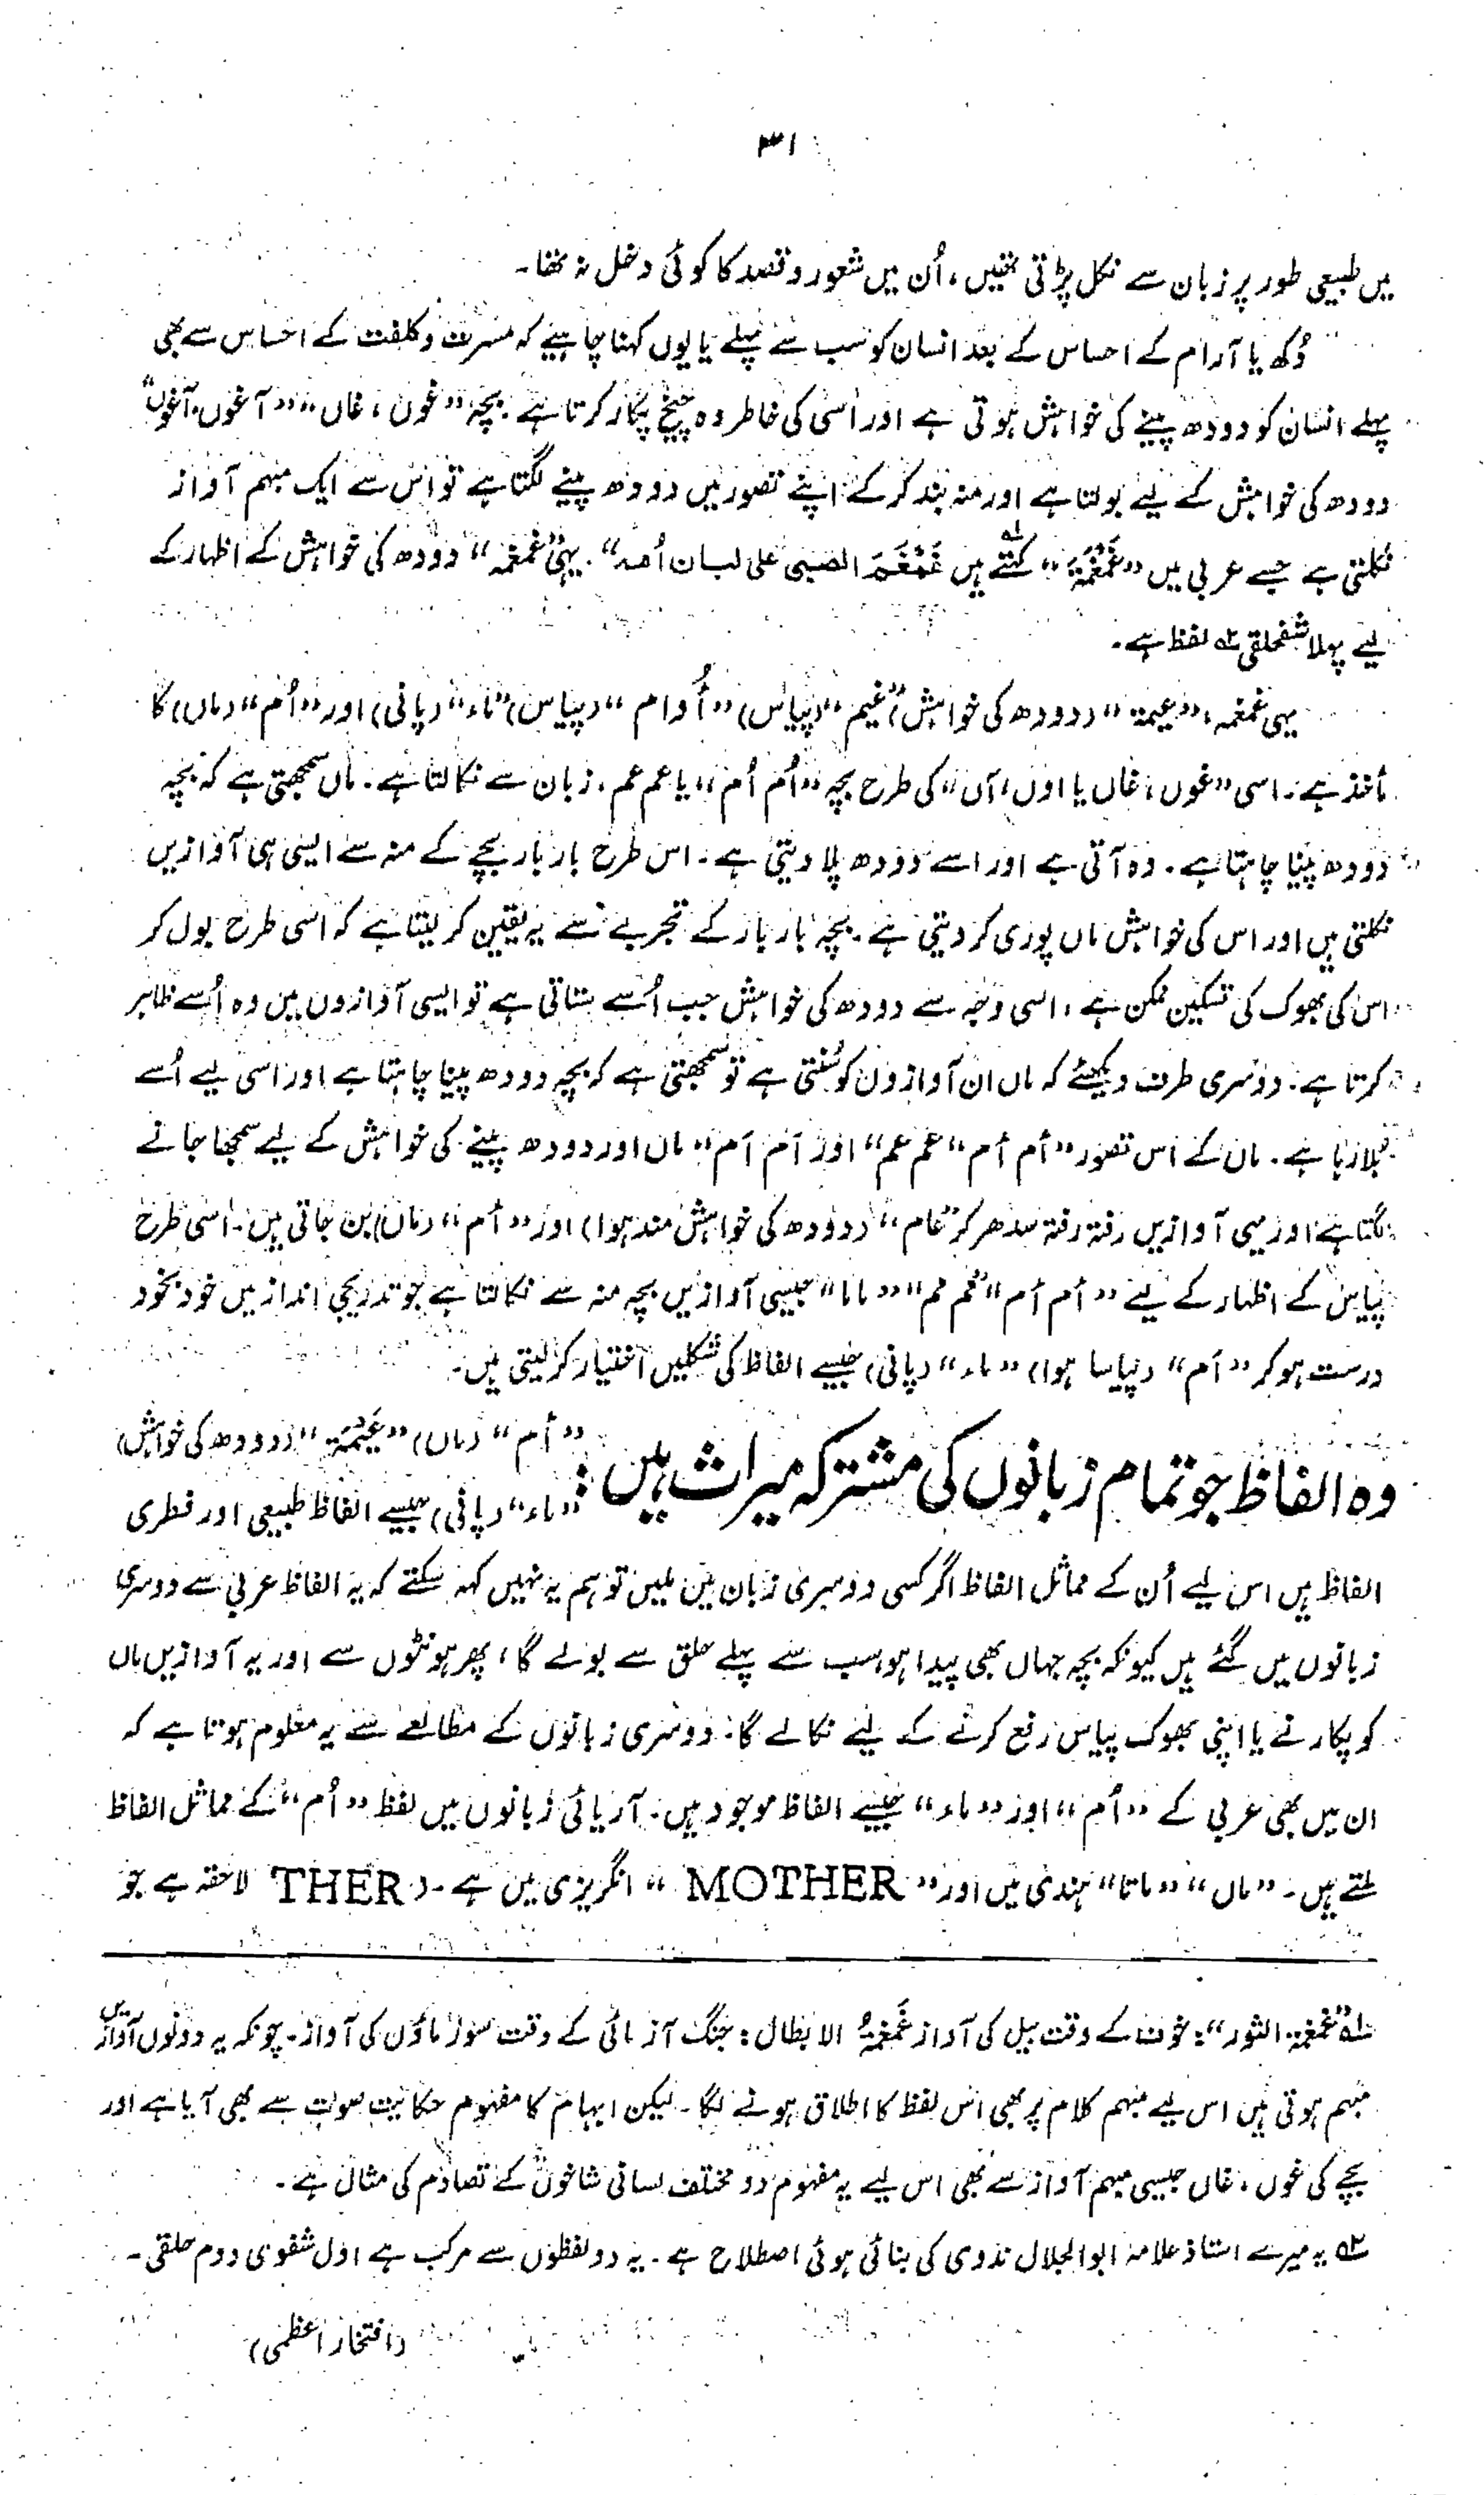 ۳۱
میں طبیعی طور پر زبان سے نکل پڑتی تھیں، اُن میں شعور و قصد کا کوئی دخل نہ تھا۔
دُکھ یا آرام کے احساس کے بعد انسان کو سب سے پہلے یا یوں کہنا چاہیے کہ مسرت و کلفت کے احساس سے بھی
پہلے انسان کو دودھ پینے کی خواہش ہوتی ہے اور اسی کی خاطر وہ چیخ پکار کرتا ہے۔ بچہ ”غون، غاں“ ”آغوں، آغوں“
دودھ کی خواہش کے لیے بولتا ہے اور منہ بند کر کے اپنے تصور میں دودھ پینے لگتا ہے تو اس سے ایک مبہم آواز
نکلتی ہے جسے عربی میں ”غَمْغَمَۃ“ کہتے ہیں لہ غَمْغَمَ الصبی علی لبان اُمہ“۔ یہی ”غمغمہ“ دودھ کی خواہش کے اظہار کے
لیے پہلا شفحلقی ٢ہ لفظ ہے۔
یہی غمغمہ، ”عیمۃ“ (دودھ کی خواہش) ”غیم“ (پیاس) ”أُوام“ (پیاس) ”ماء“ (پانی) اور ”اُم“ (ماں) کا
مأخذ ہے۔ اسی ”غوں، غاں یا اوں، آں“ کی طرح بچہ ”اُم اُم“ یا عم عم، زبان سے نکالتا ہے۔ ماں سمجھتی ہے کہ بچہ
دودھ پینا چاہتا ہے۔ وہ آتی ہے اور اسے دودھ پلا دیتی ہے۔ اس طرح بار بار بچے کے منہ سے ایسی ہی آوازیں
نکلتی ہیں اور اس کی خواہش ماں پوری کر دیتی ہے۔ بچہ بار بار کے تجربے سے یہ یقین کر لیتا ہے کہ اسی طرح بول کر
اس کی بھوک کی تسکین ممکن ہے، اسی وجہ سے دودھ کی خواہش جب اُسے ستاتی ہے تو ایسی آوازوں میں وہ اُسے ظاہر
کرتا ہے۔ دوسری طرف دیکھئے کہ ماں ان آوازوں کو سُنتی ہے تو سمجھتی ہے کہ بچہ دودھ پینا چاہتا ہے اور اسی لیے اُسے
بلا رہا ہے۔ ماں کے اس تصور ”اُم اُم“ ”عم عم“ اور اَم اَم“ ماں اور دودھ پینے کی خواہش کے لیے سمجھا جانے
لگتا ہے اور یہی آوازیں رفتہ رفتہ سدھر کر ”عام“ (دودھ کی خواہش مند ہوا) اور ”اُم“ (ماں) بن جاتی ہیں۔ اسی طرح
پیاس کے اظہار کے لیے ”اُم اُم“ ”مم مم“ ”ماما“ جیسی آوازیں بچہ منہ سے نکالتا ہے جو تدریجی انداز میں خود بخود
درست ہو کر ”اَم“ (پیاسا ہوا) ”ماء“ (پانی) جیسے الفاظ کی شکلیں اختیار کر لیتی ہیں۔
وہ الفاظ جو تمام زبانوں کی مشترکہ میراث ہیں:
”اُم“ (ماں) ”عَیْمَۃ“ (دودھ کی خواہش)
”ماء“ (پانی) جیسے الفاظ طبیعی اور فطری
الفاظ ہیں اس لیے اُن کے مماثل الفاظ اگر کسی دوسری زبان میں ملیں تو ہم یہ نہیں کہہ سکتے کہ یہ الفاظ عربی سے دوسری
زبانوں میں گئے ہیں کیونکہ بچہ جہاں بھی پیدا ہو سب سے پہلے حلق سے بولے گا، پھر ہونٹوں سے اور یہ آوازیں ماں
کو پکارنے یا اپنی بھوک پیاس رفع کرنے کے لیے نکالے گا۔ دوسری زبانوں کے مطالعے سے یہ معلوم ہوتا ہے کہ
ان میں بھی عربی کے ”اُم“ اور ”ماء“ جیسے الفاظ موجود ہیں۔ آریائی زبانوں میں لفظ ”اُم“ کے مماثل الفاظ
ملتے ہیں۔ ”ماں“ ”ماتا“ ہندی میں اور ”MOTHER“ انگریزی میں ہے۔ (THER لاحقہ ہے جو
لہ ”غمغمۃ الثور“: خوف کے وقت بیل کی آواز غَمْغَمَۃُ الابطال: جنگ آزمائی کے وقت سورماؤں کی آواز۔ چونکہ یہ دونوں آوازیں
مبہم ہوتی ہیں اس لیے مبہم کلام پر بھی اس لفظ کا اطلاق ہونے لگا۔ لیکن ابہام کا مفہوم حکایت صوت سے بھی آیا ہے اور
بچے کی غوں، غاں جیسی مبہم آواز سے بھی اس لیے یہ مفہوم دو مختلف لسانی شاخوں کے تصادم کی مثال ہے۔
٢ہ یہ میرے استاذ علامہ ابوالجلال ندوی کی بنائی ہوئی اصطلاح ہے۔ یہ دو لفظوں سے مرکب ہے اول شفوی دوم حلقی۔
(افتخار اعظمی)